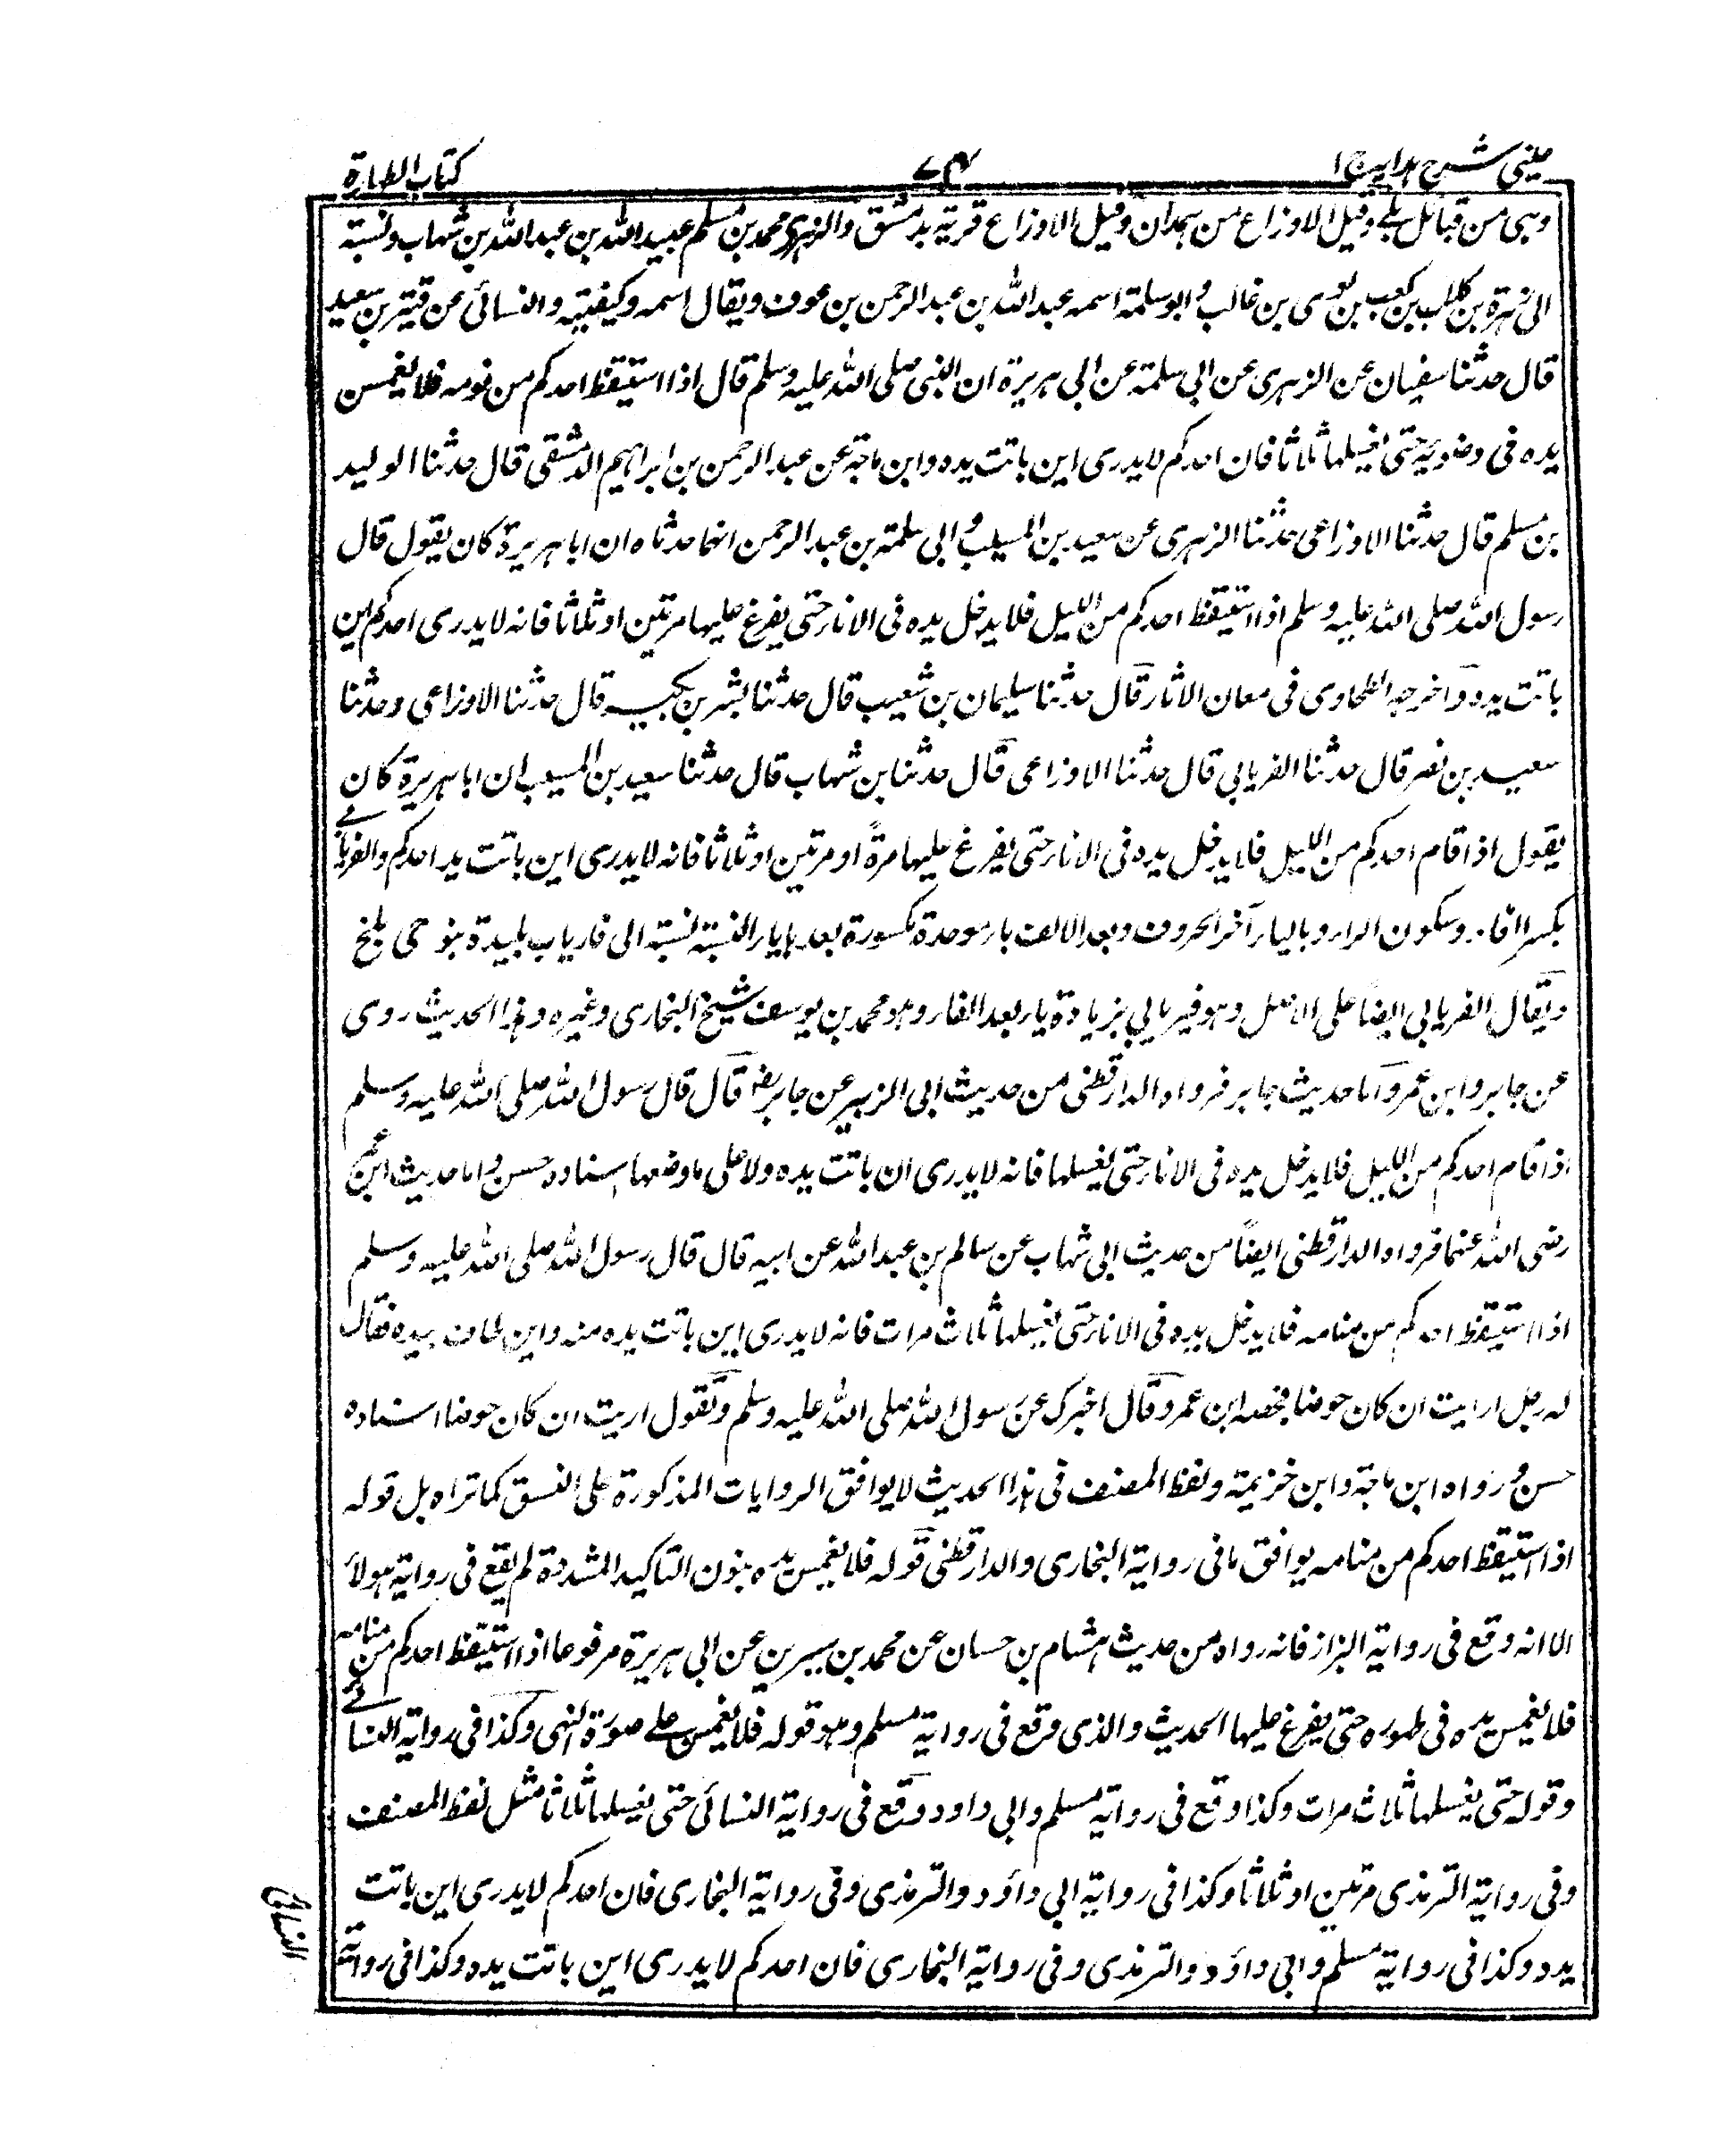 عینی شرح ہدایہ ج ۱
۷۴
کتاب الطہارة
وہی من قبائل شتی وقیل الاوزاع من ہمدان وقیل الاوزاع قریة بدمشق والزہری محمد بن مسلم عبید الله بن عبد الله بن شہاب ونسبتہ
الی زہرة بن کلاب بن کعب بن لوی بن غالب وابو سلمة اسمہ عبد الله بن عبد الرحمن بن عوف ویقال اسمہ وکنیتہ والنسائی عن قتیبة بن سعید
قال حدثنا سفیان عن الزہری عن ابی سلمة عن ابی ہریرة ان النبی صلی الله علیہ وسلم قال اذا استیقظ احدکم من نومہ فلا یغمس
یدہ فی وضوئہ حتی یغسلہا ثلاثا فان احدکم لا یدری این باتت یدہ وابن ماجة عن عبد الرحمن بن ابراہیم الدمشقی قال حدثنا الولید
بن مسلم قال حدثنا الاوزاعی حدثنا الزہری عن سعید بن المسیب وابی سلمة بن عبد الرحمن انہما حدثاہ ان ابا ہریرة کان یقول قال
رسول الله صلی الله علیہ وسلم اذا استیقظ احدکم من اللیل فلا یدخل یدہ فی الاناء حتی یفرغ علیہا مرتین او ثلاثا فانہ لا یدری احدکم این
باتت یدہ واخرجہ الطحاوی فی معان الاثار قال حدثنا سلیمان بن شعیب قال حدثنا بشر بن بکیر قال حدثنا الاوزاعی وحدثنا
سعید بن نصر قال حدثنا الفریابی قال حدثنا الاوزاعی قال حدثنا بن شہاب قال حدثنا سعید بن المسیب ان ابا ہریرة کان
یقول اذا قام احدکم من اللیل فلا یدخل یدہ فی الاناء حتی یفرغ علیہا مرةً او مرتین او ثلاثا فانہ لا یدری این باتت ید احدکم والفریابے
بکسر الفاء وسکون الراء وبالیاء آخر الحروف وبعد الالف باء موحدة مکسورة بعدہا یاء النسبة نسبة الی فاریاب بلیدة بنواحی بلخ
ویقال الفریابی ایضاً علی الاصل وہو فیریابی بزیادة یاء بعد الفاء وہو محمد بن یوسف شیخ البخاری وغیرہ وہذا الحدیث روی
عن جابر وابن عمر واما حدیث جابر فرواہ الدارقطنی من حدیث ابی الزبیر عن جابر رض قال قال رسول الله صلی الله علیہ وسلم
اذا قام احدکم من اللیل فلا یدخل یدہ فی الاناء حتی یغسلہا فانہ لا یدری ان باتت یدہ ولا علی ما وضعہا اسنادہ حسن واما حدیث ابن عمر
رضی الله عنہما فرواہ الدارقطنی ایضاً من حدیث ابی شہاب عن سالم بن عبد الله عن ابیہ قال قال رسول الله صلی الله علیہ وسلم
اذا استیقظ احدکم من منامہ فلا یدخل یدہ فی الاناء حتی یغسلہا ثلاث مرات فانہ لا یدری این باتت یدہ منہ واین طاف بیدہ فقال
لہ رجل ارایت ان کان حوضا فحصبہ ابن عمر وقال اخبرک عن رسول الله صلی الله علیہ وسلم وتقول اریت ان کان حوضا اسنادہ
حسن ورواہ ابن ماجة وابن خزیمة ولفظ المصنف فی ہذا الحدیث لا یوافق الروایات المذکورة علی النسق کما تراہ بل قولہ
اذا استیقظ احدکم من منامہ یوافق مافی روایة البخاری والدارقطنی قولہ فلا یغمسن یدہ بنون التاکید المشددة لم یقع فی روایة ہولاء
الا انہ وقع فی روایة البزاز فانہ رواہ من حدیث ہشام بن حسان عن محمد بن سیرین عن ابی ہریرة مرفوعا اذا استیقظ احدکم من منامہ
فلا یغمسن یدہ فی طہورہ حتی یفرغ علیہا الحدیث والذی وقع فی روایة مسلم وہو قولہ فلا یغمس علے صورة النہی وکذا فی روایة النسائے
وقولہ حتی یغسلہا ثلاث مرات وکذا وقع فی روایة مسلم وابی داود ووقع فی روایة النسائی حتی یغسلہا ثلاثا مثل لفظ المصنف
وفی روایة الترمذی مرتین او ثلاثا وکذا فی روایة ابی داؤد والترمذی وفی روایة البخاری فان احدکم لا یدری این باتت
یدہ وکذا فی روایة مسلم وابی داؤد والترمذی وفی روایة البخاری فان احدکم لا یدری این باتت یدہ وکذا فی روایة
النسائی